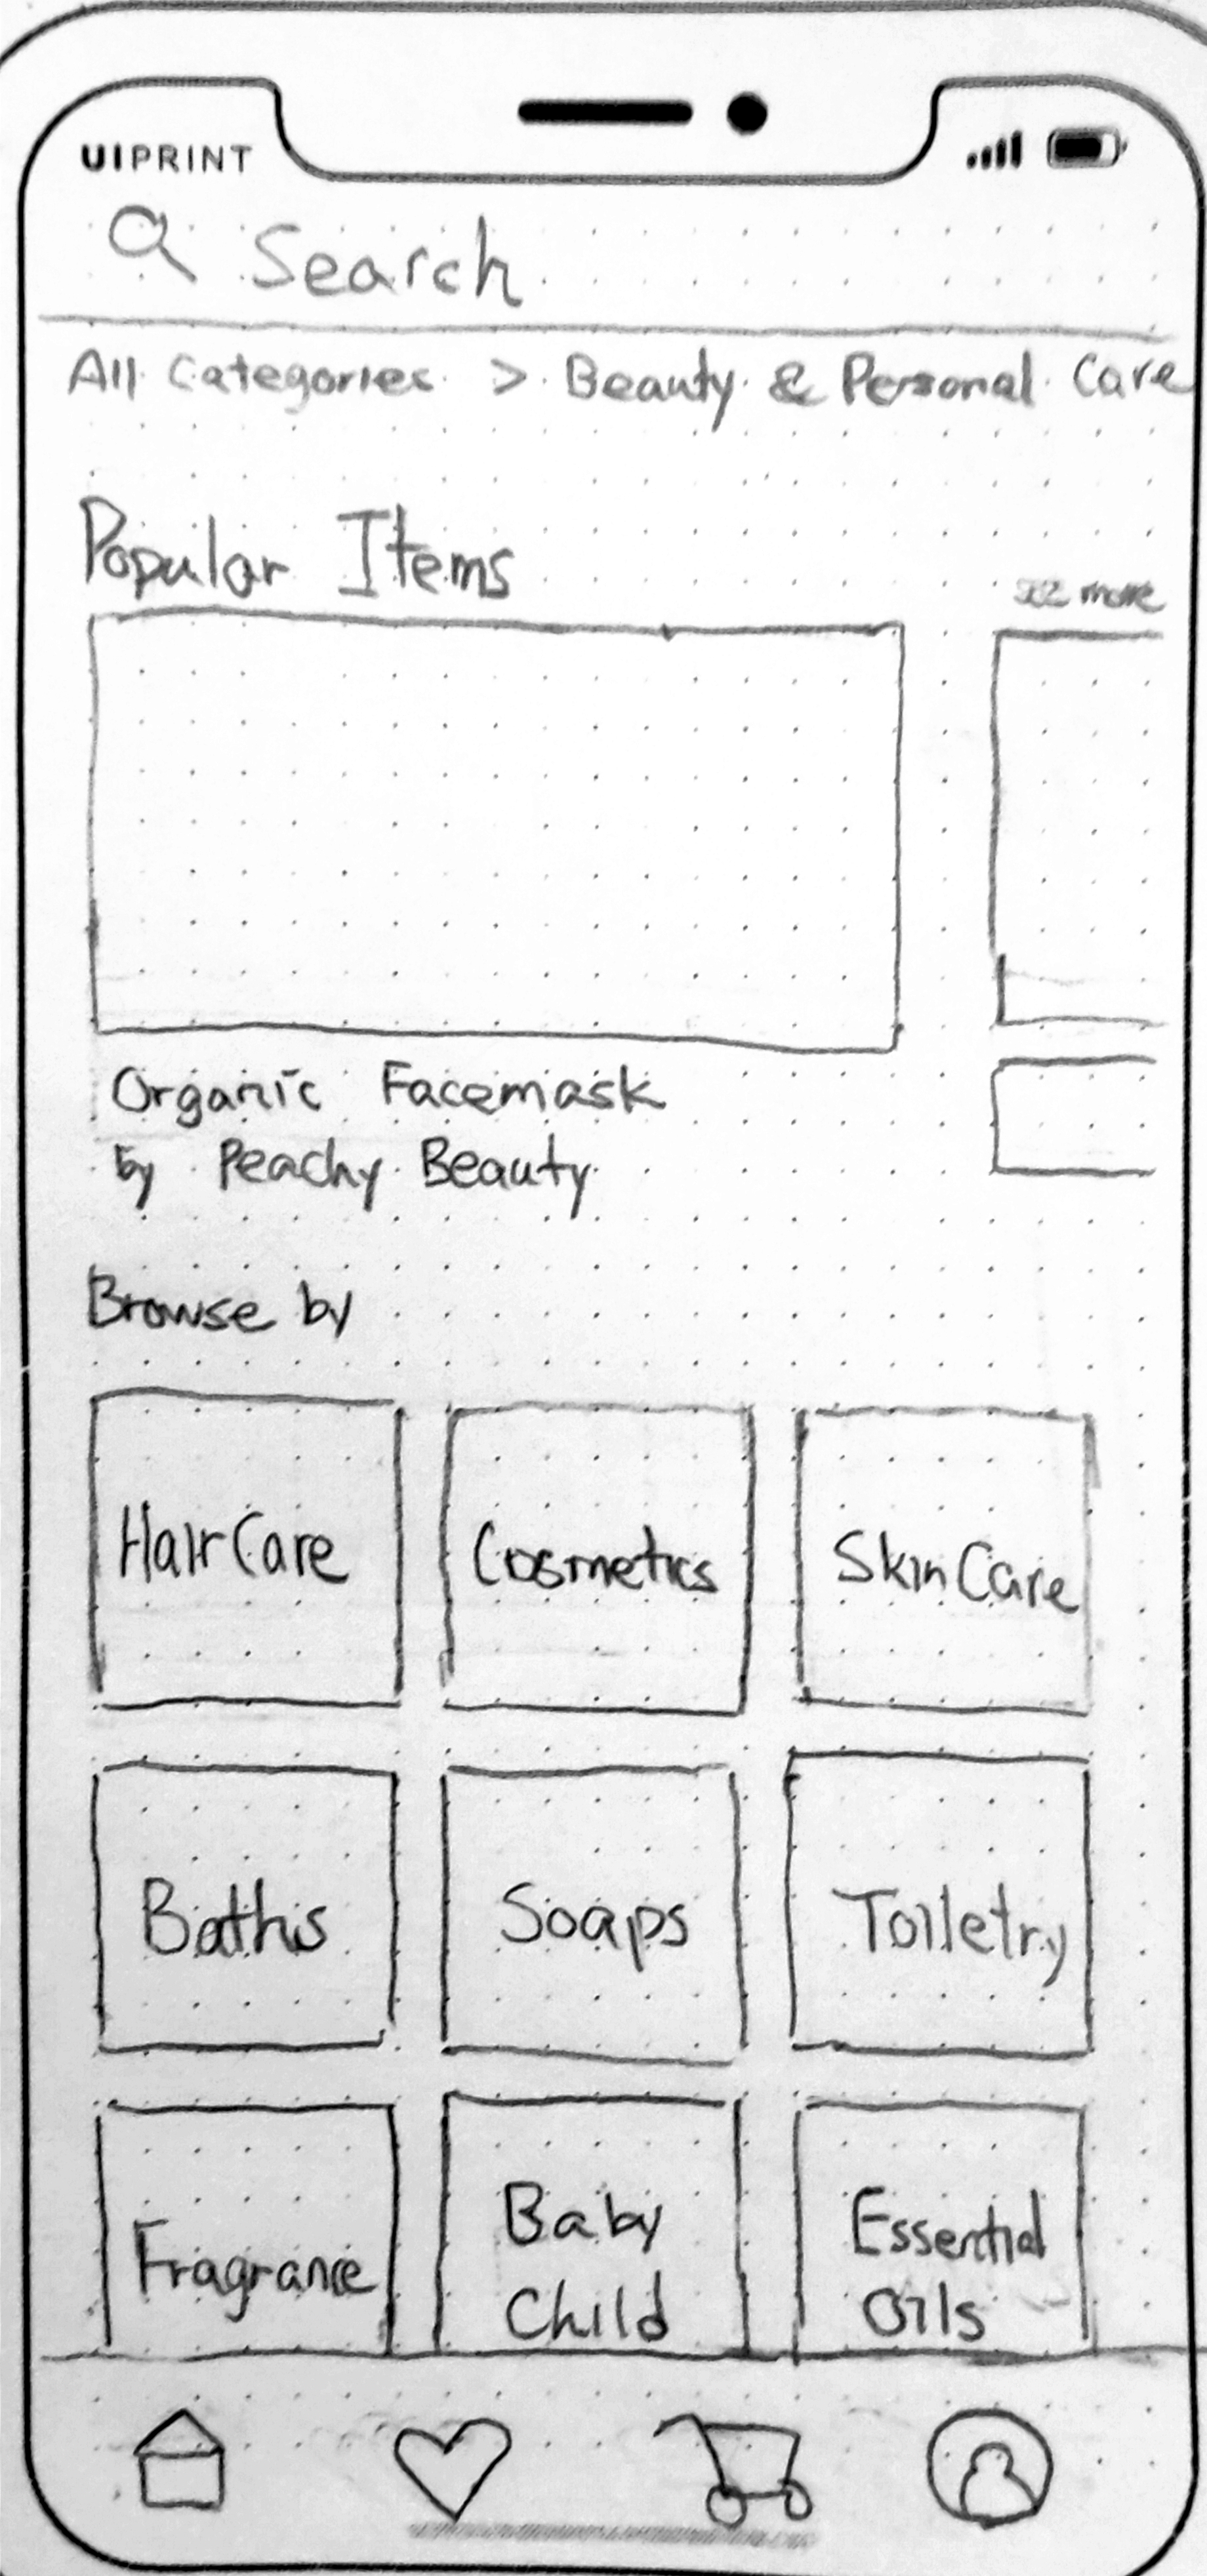 UIPRINT
Search
All Categories > Beauty & Personal Care
Popular Items
see more
Organic Facemask
by Peachy Beauty
Browse by
HairCare
Cosmetics
SkinCare
Baths
Soaps
Toiletry
Fragrance
Baby
Child
Essential
Oils